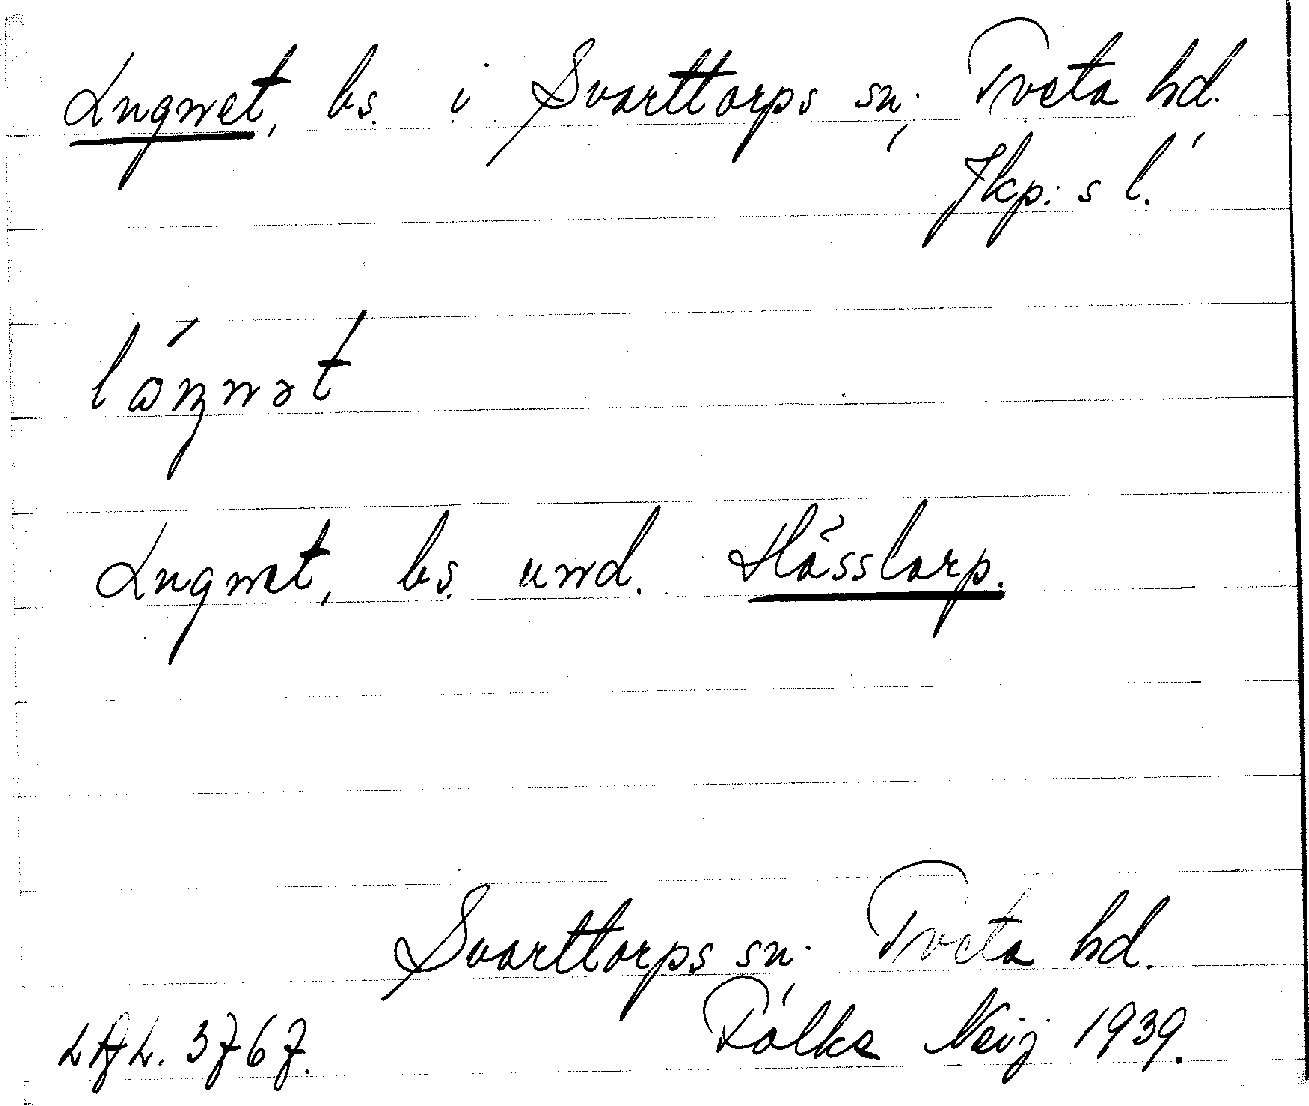 Lugnet, bs. i Svarttorps sn; Tveta hd.
Jkp: s l.
Lugnet, bs. und. Hässlarp.
Svarttorps sn. Tveta hd.
Fälke Neij 1939.
LAL. 3767.